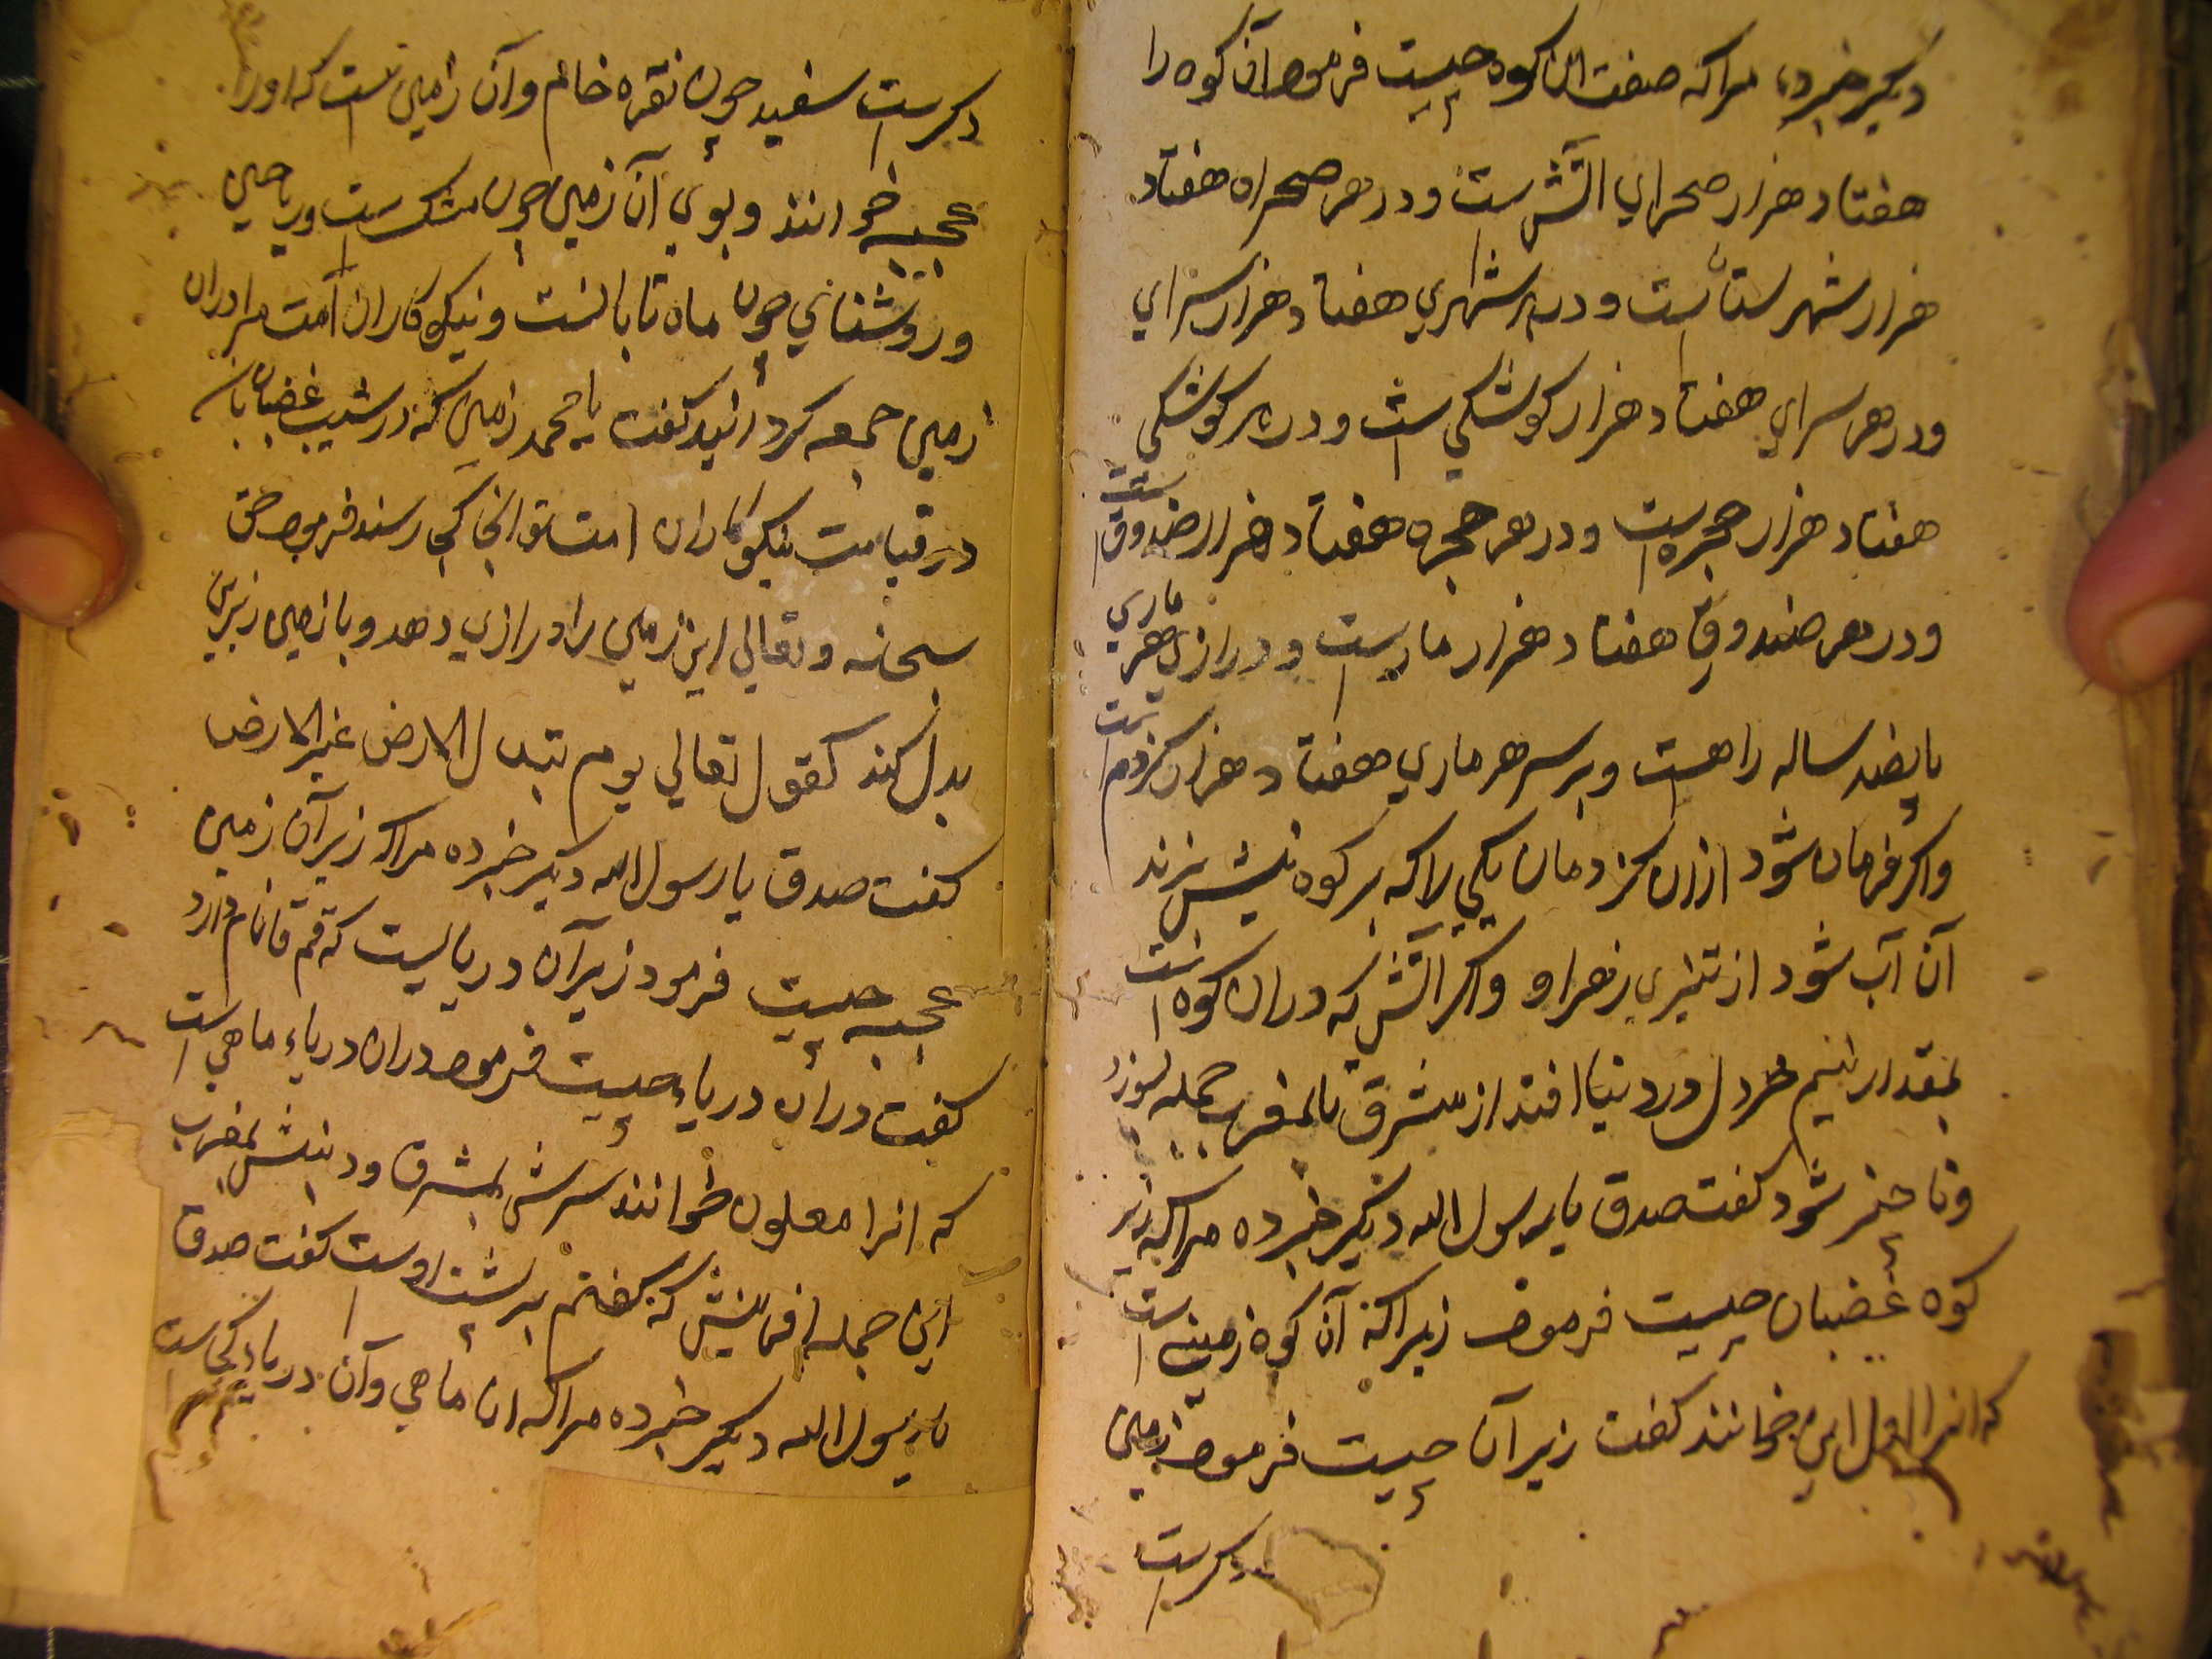 دیکر خبر ده مرا که صفت ان کوه چیست فرمود آن کوه را
هفتاد هزار صحرای اتش است و در هر صحراه هفتاد
هزار شهرستانست و در هر شهری هفتاد هزار سرای
و در هر سرای هفتاد هزار کوشکی است و در هر کوشکی
هفتاد هزار حجره است و در هر حجره هفتاد هزار صندوق است
و در هر صندوق هفتاد هزار مار است و درازی هر ماری
پانصد ساله راهست و بر سر هر ماری هفتاد هزار کزدم است
واکر فرمان شود ازان کزدمان یکی را که بر کوه نیش بزند
آن آب شود از تیزی زهر او واکر اتش که دران کوه است
بمقدار نیم خردل در دنیا افتد از مشرق تا بمغرب جمله بسوزد
و ناچیز شود کفت صدق یا رسول الله دیکر خبر ده مرا که زیر
کوه غضبان چیست فرمود زیرا که آن کوه زمین است
که انرا این خوانند کفت زیر آن چیست فرمود زمین
دیکرست
دکرست سفید چون نقره خام و آن زمین است که اورا
عجبیه خوانند و بوی آن زمین چون مشکست و ریاحین
و روشنائی چون ماه تابانست و نیک کاران امت مرا دران
زمین جمعه کردانید کفت یا محمد زمین که در شیب غضبان باشد
در قیامت نیکو کاران امت تو انجا کی رسند فرمود حق
سبحانه و تعالی این زمین را درازی دهد و با زمین زیرین
بدل کند کقول تعالی یوم تبدل الارض غیر الارض
کفت صدق یا رسول الله دیکر خبر ده مرا که زیر آن زمین
عجبیه چیست فرمود زیر آن دریایست که قمقا نام دارد
کفت دران دریاء چیست فرمود دران دریاء ماهی است
که انرا معلون خوانند سرش بمشرق و دنبش بمغرب
این جمله افرینش که کفتم بر پشت اوست کفت صدق
یا رسول الله دیکر خبر ده مرا که ان ماهی و آن دریاء کجاست